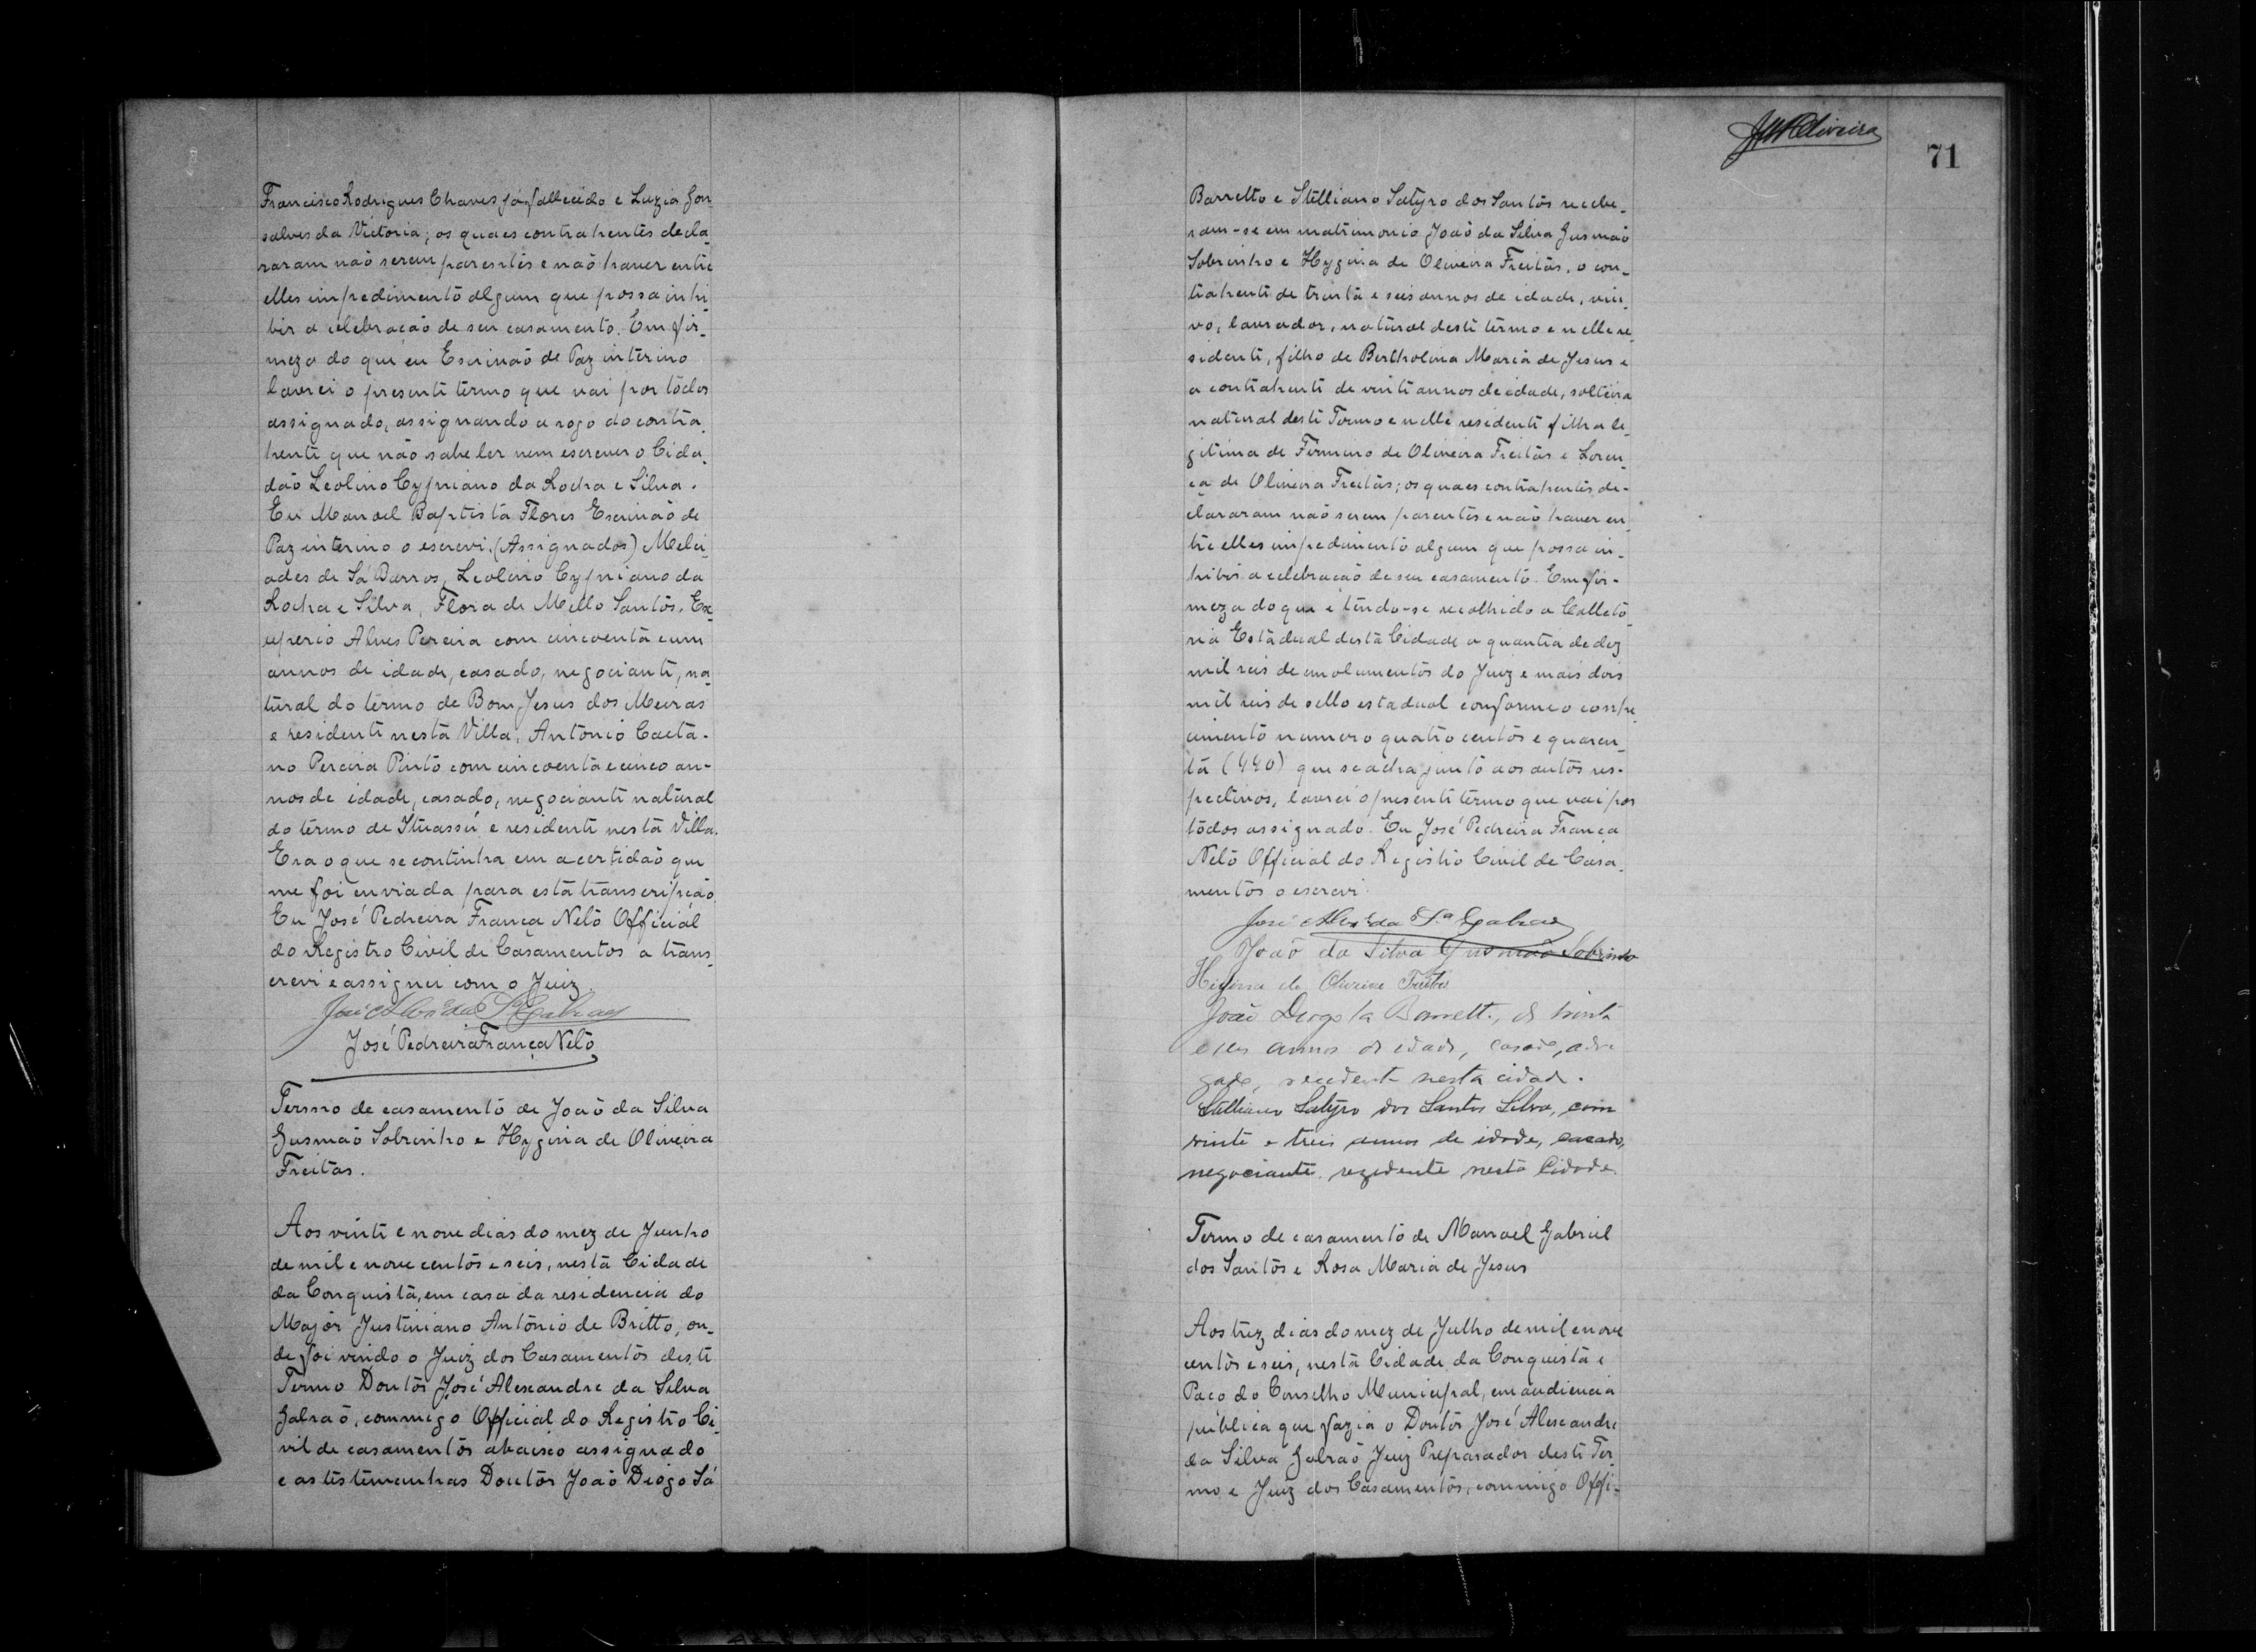 Francisco Rodrigues Chaves já fallecido e Luzia Gon
salves da Victoria; os quaes contrahentes decla
raram não serem parentes e não haver entre
elles impedimento algum que possa inhi
bir a celebração de seu casamento. Em fir_
meza do que eu Escrivão de Paz interino
lavrei o presente termo que vai por todos
assignado, assignando a rogo do contra_
hente que não sabe ler nem escrever o Cida_
dão Leolino Cypriano da Rocha e Silva.
Eu Manoel Baptista Flores Escrivão de
Paz interino o escrevi. (Assignados) Melci_
ades de Sá Barros, Leolino Cypriano da
Rocha e Silva, Flora de Mello Santos, Ex
uperio Alves Pereira com cincoenta e um
annos de idade, casado, negociante, na_
tural do termo de Bom Jesus dos Meiras
e residente nesta Villa, Antonio Caeta-
no Pereira Pinto com cincoenta e cinco an-
nos de idade, casado, negociante natural
do termo de Ituassú e residente nesta Villa.
Era o que se continha em a certidão que
me foi enviada para esta transcripção
Eu José Pedreira França Netto Official
do Registro Civil de Casamentos a trans_
crevi e assignei com o Juiz.
José Alexe da Sa Galrão
José Pedreira França Netto
Termo de casamento de João da Silva
Gusmão Sobrinho e Hygina de Oliveira
Freitas.
Aos vinte e nove dias do mez de Junho
de mil e nove centos e seis, nesta Cidade
da Conquista, em casa da residencia do
Major Justiniano Antonio de Britto, on_
de foi vindo o Juiz dos Casamentos deste
Termo Doutor José Alexandre da Silva
Galrão, commigo Official do Registro Ci_
vil de casamentos abaixo assignado
e as testemunhas Doutor João Diogo Sá
JMOliveira
71
Barretto e Stelliano Satyro dos Santos recebe_
ram-se em matrimonio João da Silva Gusmão
Sobrinho e Hygina de Oliveira Freitas, o con_
trahente de trinta e seis annos de idade, viu_
vo, lavrador, natural deste termo e nelle re
sidente, filho de Bertholina Maria de Jesus e
a contrahente de vinte annos de idade, solteira
natural deste Termo e nelle residente filha le_
gitima de Firmino de Oliveira Freitas e Loren_
ça de Oliveira Freitas; os quaes contrahentes de-
clararam não serem parentes e não haver en_
tre elles impedimento algum que possa in_
hibir a celebração de seu casamento. Em fir-
meza do que e tendo-se recolhido a Colleto_
ria Estadual desta Cidade a quantia de dez
mil reis de emolumentos do Juiz e mais dois
mil reis de sello estadual conforme o conhe_
cimento numero quatro centos e quaren_
ta (440) que se acha junto aos autos res-
pectivos, lavrei o presente termo que vai por
todos assignado. Eu José Pedreira França
Netto Official do Registro Civil de Casa_
mentos o escrevi.
José Alexe da Sa Galrão
João da Silva Gusmão Sobrinho
Higina de Oliveira Freitas
João Diogo Sá Barretto, de trinta
e seis annos de idade, casado, advo
gado, residente nesta cidade.
Stelliano Satyro dos Santos Silva, com
vinte e treis annos de idade, casado,
negociante, rezidente nesta Cidade.
Termo de casamento de Manoel Gabriel
dos Santos e Rosa Maria de Jesus
Aos trez dias do mez de Julho de mil e nove
centos e seis, nesta Cidade da Conquista e
Paço do Conselho Municipal, em audiencia
publica que fazia o Doutor José Alexandre
da Silva Galrão Juiz Preparador deste Ter_
mo e Juiz dos Casamentos, commigo Offi-